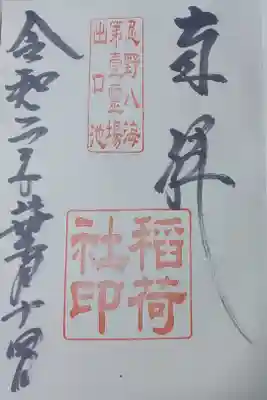 奉拝
忍野八海
第壹霊場
出口池
稲荷
社印
令和二年葉月十四日